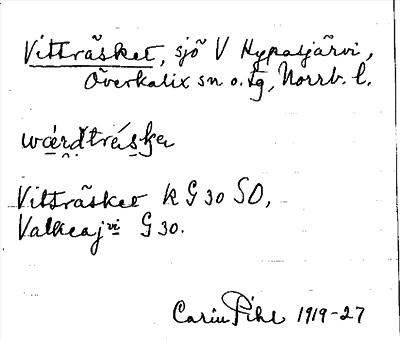 Vitträsket, sjö V Hypasjärvi,
Överkalix sn o. tg, Norrb. l.
wǽrdtrǽska
Vitträsket K G 30 SO,
Valkeajvi G 30.
Carin Pihl 1919-27